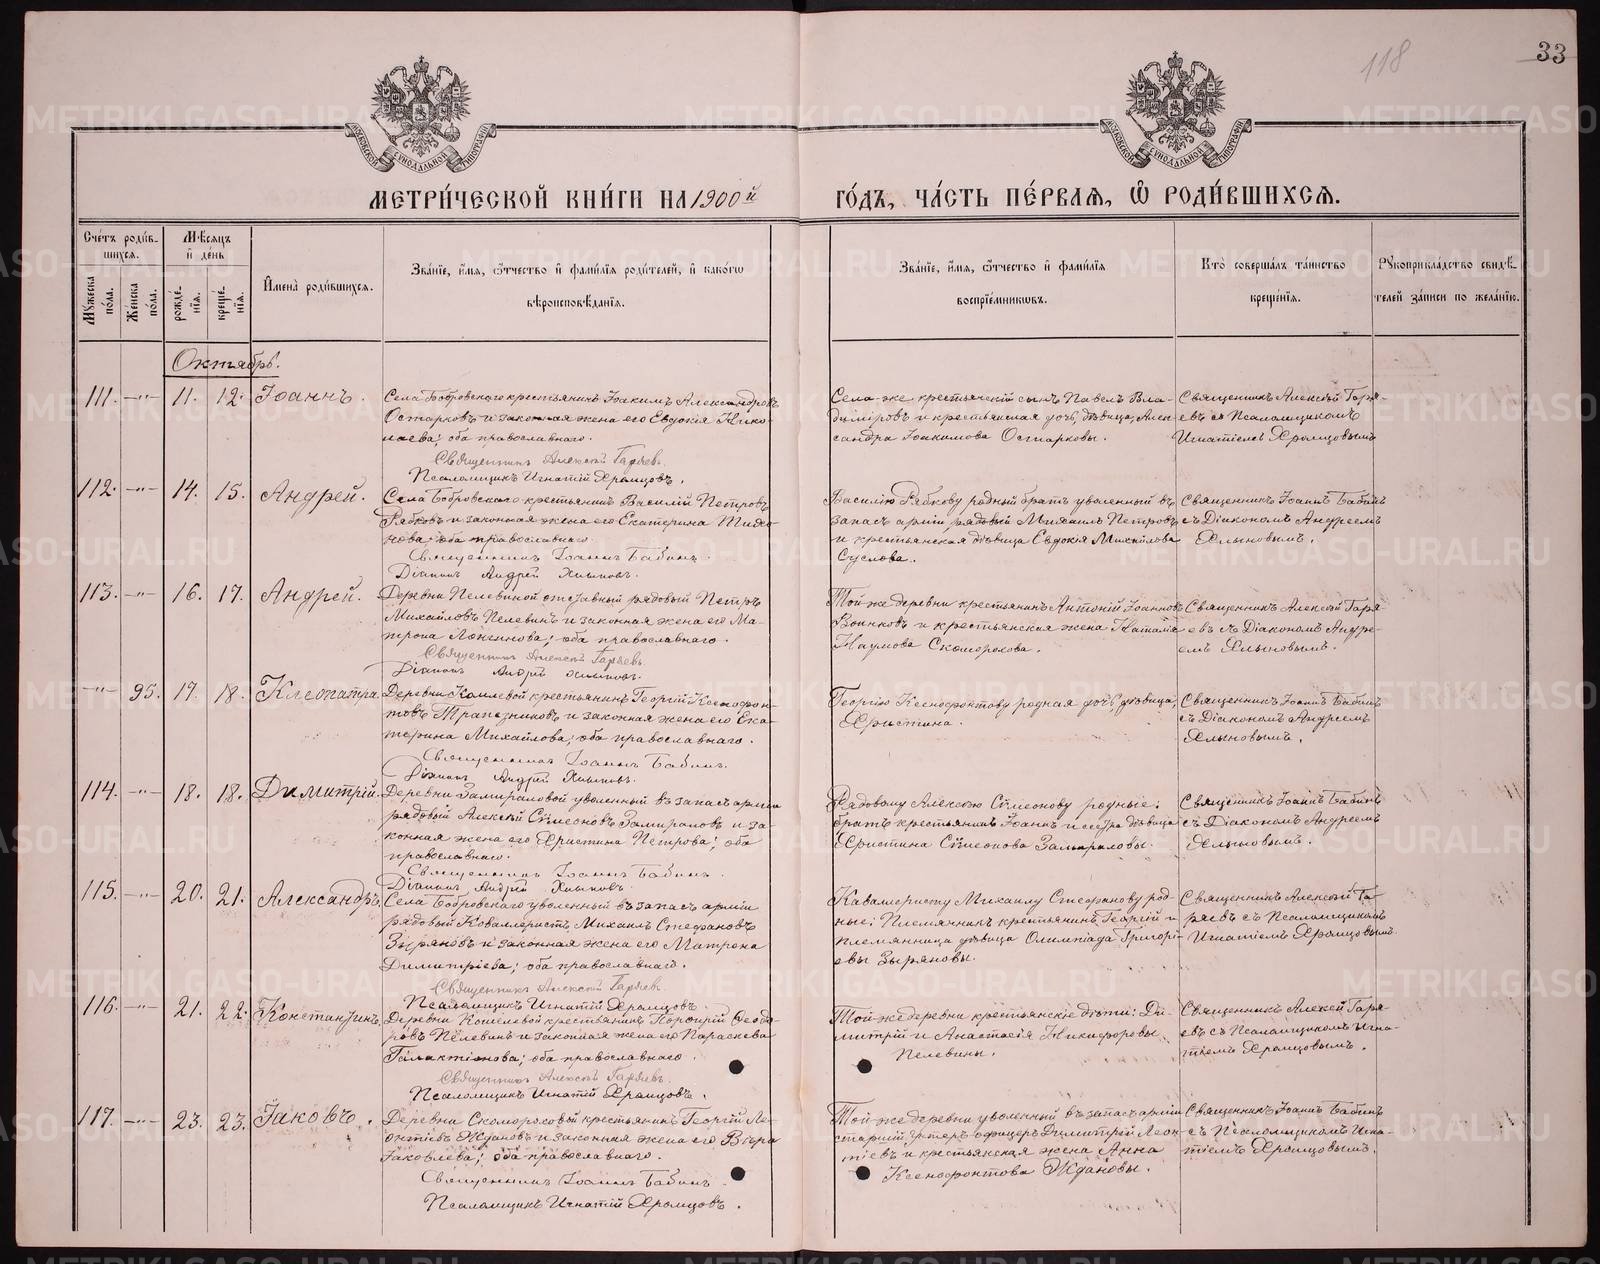 118
33
МЕТРИ́ЧЕСКОЙ КНИ́ГИ НА 1900й
ГО́ДЪ, ЧА́СТЬ ПЕ́РВАѦ, Ѡ҆ РОДИ́ВШИХСѦ.
Сче́тъ роди́в-
шихсѧ.
Мꙋ́жеска по́ла.
Же́нска по́ла.
Мѣ́сѧцъ
и҆ де́нь
рожде́-
нїѧ.
креще́-
нїѧ.
И҆мена̀ роди́вшихсѧ.
Зва́нїе, и҆́мѧ, ѻ҆́тчество и҆ фами́лїѧ роди́телей, и҆ како́гѡ
вѣроисповѣ́данїѧ.
Зва́нїе, и҆́мѧ, ѻ҆́тчество и҆ фами́лїѧ
воспрїе́мникѡвъ.
Кто̀ соверша́лъ та́инство
креще́нїѧ.
Рꙋкоприкла́дство свидѣ́-
телей за́писи по жела́нїю.
Октябрь.
111. -"- 11. 12. Іоаннъ.
Села Бобровскаго крестьянинъ Іоакимъ Александровъ
Остарковъ и законная жена его Евдокія Нико-
лаева; оба православнаго.
Священникъ Алексѣй Гаряевъ.
Псаломщикъ Игнатій Храмцовъ.
Села-же крестьянскій сынъ Павелъ Вла-
диміровъ и крестьянская дочь, дѣвица, Алек-
сандра Іоакимова Остарковы.
Священникъ Алексѣй Гаря-
евъ съ Псаломщикомъ
Игнатіемъ Храмцовымъ
112. -"- 14. 15. Андрей.
Села Бобровскаго крестьянинъ Василій Петровъ
Рябковъ и законная жена его Екатерина Тихо-
нова; оба православнаго
Священникъ Іоаннъ Бабинъ.
Діаконъ Андрей Хлыновъ.
Василію Рябкову родный братъ уволенный въ
запасъ арміи рядовый Михаилъ Петровъ
и крестьянская дѣвица Евдокія Михайлова
Суслова.
Священникъ Іоаннъ Бабинъ
съ Діакономъ Андреемъ
Хлыновымъ.
113. -"- 16. 17. Андрей.
Деревни Пелевиной отставный рядовый Петръ
Михайловъ Пелевинъ и законная жена его Ма-
трона Логинова; оба православнаго.
Священникъ Алексѣй Гаряевъ.
Діаконъ Андрей Хлыновъ.
Той же деревни крестьянинъ Антоній Іоанновъ
Воинковъ и крестьянская жена Наталія
Наумова Скоморохова.
Священникъ Алексѣй Гаря-
евъ съ Діакономъ Андре-
емъ Хлыновымъ.
-"- 95. 17. 18. Клеопатра
Деревни Комлевой крестьянинъ Георгій Ксенофон-
товъ Трапезниковъ и законная жена его Ека-
терина Михайлова; оба православнаго.
Священникъ Іоаннъ Бабинъ.
Діаконъ Андрей Хлыновъ.
Георгію Ксенофонтову родная дочь дѣвица
Христина.
Священникъ Іоаннъ Бабинъ
съ Діакономъ Андреемъ
Хлыновымъ.
114. -"- 18. 18. Димитрій.
Деревни Замираловой уволенный въ запасъ арміи
рядовый Алексѣй Сѵмеоновъ Замираловъ и за-
конная жена его Христина Петрова; оба
православнаго.
Священникъ Іоаннъ Бабинъ.
Діаконъ Андрей Хлыновъ.
Рядовому Алексѣю Сѵмеонову родные:
братъ крестьянинъ Іоаннъ и сестра дѣвица
Христина Сѵмеонова Замираловы.
Священникъ Іоаннъ Бабинъ
съ Діакономъ Андреемъ
Хлыновымъ.
115. -"- 20. 21. Александръ.
Села Бобровскаго уволенный въ запасъ арміи
рядовый Коваллеристъ Михаилъ Стефановъ
Зыряновъ и законная жена его Матрона
Димитріева; оба православнаго.
Священникъ Алексѣй Гаряевъ.
Псаломщикъ Игнатій Храмцовъ.
Кавалеристу Михаилу Стефанову род-
ные: Племянникъ крестьянинъ Георгій и
племянница дѣвица Олимпіада Григорі-
евы Зыряновы.
Священникъ Алексѣй Га-
ряевъ съ Псаломщикомъ
Игнатіемъ Храмцовымъ.
116. -"- 21. 22. Константинъ.
Деревни Кошелевой крестьянинъ Порфирій Ѳеодо-
ровъ Пелевинъ и законная жена его Параскева
Галактіонова; оба православнаго.
Священникъ Алексѣй Гаряевъ.
Псаломщикъ Игнатій Храмцовъ.
Той-же деревни крестьянскіе дѣти: Ди-
митрій и Анастасія Никифоровы
Пелевины.
Священникъ Алексѣй Гаря-
евъ съ Псаломщикомъ Игна-
тіемъ Храмцовымъ.
117. -"- 23. 23. Іаковъ.
Деревни Скомороховой крестьянинъ Георгій Ле-
онтіевъ Ждановъ и законная жена его Вѣра
Іаковлева; оба православнаго.
Священникъ Іоаннъ Бабинъ.
Псаломщикъ Игнатій Храмцовъ.
Той-же деревни уволенный въ запасъ арміи
старшій унтеръ-офицеръ Димитрій Леон-
тіевъ и крестьянская жена Анна
Ксенофонтова Ждановы.
Священникъ Іоаннъ Бабинъ
съ Псаломщикомъ Игна-
тіемъ Храмцовымъ.